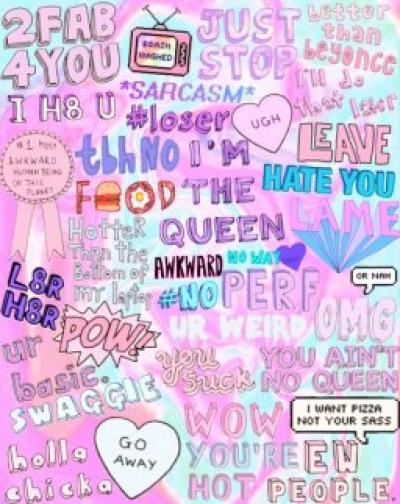 2FAB
4YOU
BRAIN
WASHED
JUST
STOP
better
than
beyonce
I'll do
that later
*SARCASM*
I H8 U
#loser
UGH
LEAVE
#1 MOST
AWKWARD
HUMAN BEING
ON THIS
PLANET
tbh NO
I'M
THE
QUEEN
HATE YOU
FOOD
LAME
HOTTER
Than the
Bottom of
my laptop
AWKWARD
NO WAY
L8R
H8R
#NO
PERF
OR NAH
OMG
POW!!
UR WEIRD
ur
basic.
you
suck
YOU AIN'T
NO QUEEN
SWAGGIE
WOW
I WANT PIZZA
NOT YOUR SASS
GO
AWAY
holla
chicka
YOU'RE
HOT
EW
PEOPLE.